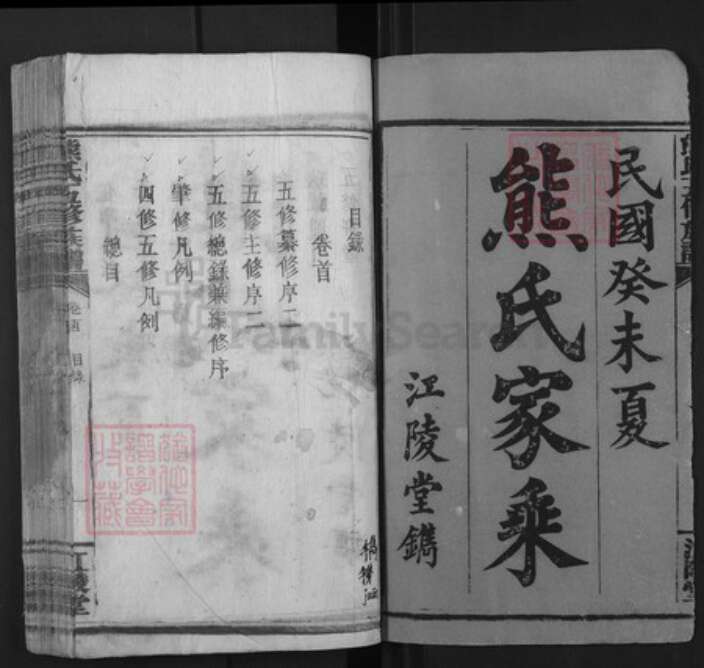 民國癸未夏
熊氏家乘
江陵堂鐫
目錄
卷首
五修纂修序二
五修主修序二
五修總錄兼編修序
肇修凡例
四修五修凡例
總目
熊氏五修族譜
卷首 目錄
江陵堂
FamilySearch